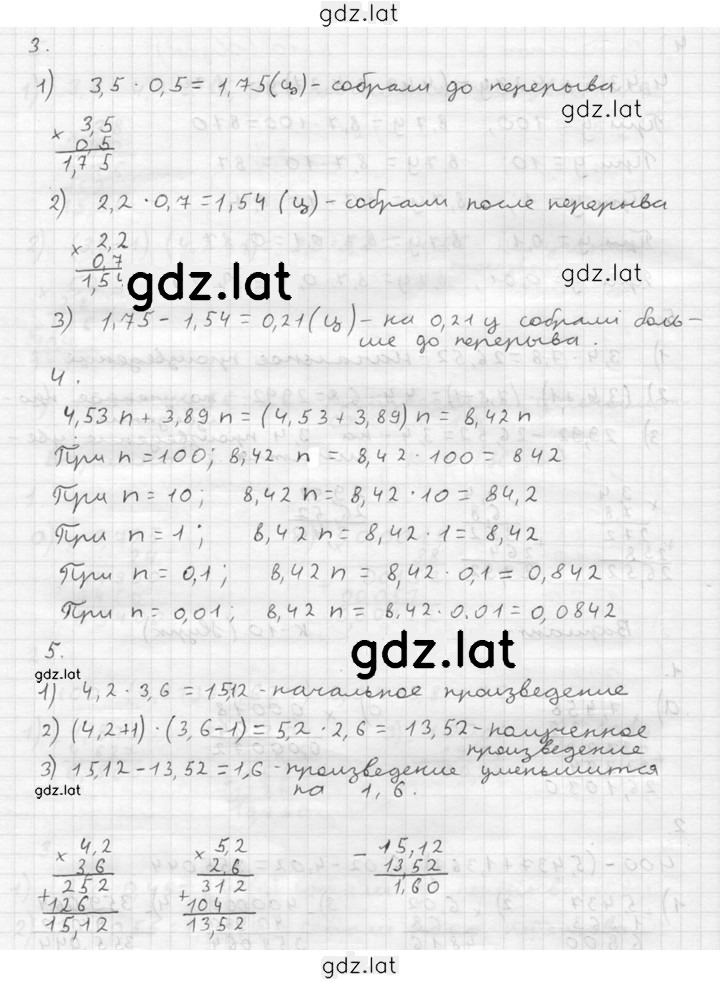 gdz.lat
3.
1) 3,5 · 0,5 = 1,75 (ц) - собрали до перерыва
gdz.lat
× 3,5
0,5
1,75
2) 2,2 · 0,7 = 1,54 (ц) - собрали после перерыва
× 2,2
0,7
1,54
gdz.lat
gdz.lat
3) 1,75 - 1,54 = 0,21 (ц) - на 0,21 ц собрали боль-
ше до перерыва.
4.
4,53 n + 3,89 n = (4,53 + 3,89) n = 8,42 n
При n = 100; 8,42 n = 8,42 · 100 = 842
При n = 10; 8,42 n = 8,42 · 10 = 84,2
При n = 1; 8,42 n = 8,42 · 1 = 8,42
При n = 0,1; 8,42 n = 8,42 · 0,1 = 0,842
При n = 0,01; 8,42 n = 8,42 · 0,01 = 0,0842
gdz.lat
5.
gdz.lat
1) 4,2 · 3,6 = 15,12 - начальное произведение
2) (4,2+1) · (3,6-1) = 5,2 · 2,6 = 13,52 - полученное
произведение
3) 15,12 - 13,52 = 1,6 - произведение уменьшится
на 1,6.
gdz.lat
× 4,2
3,6
+ 252
126
15,12
× 5,2
2,6
+ 312
104
13,52
- 15,12
13,52
1,60
gdz.lat